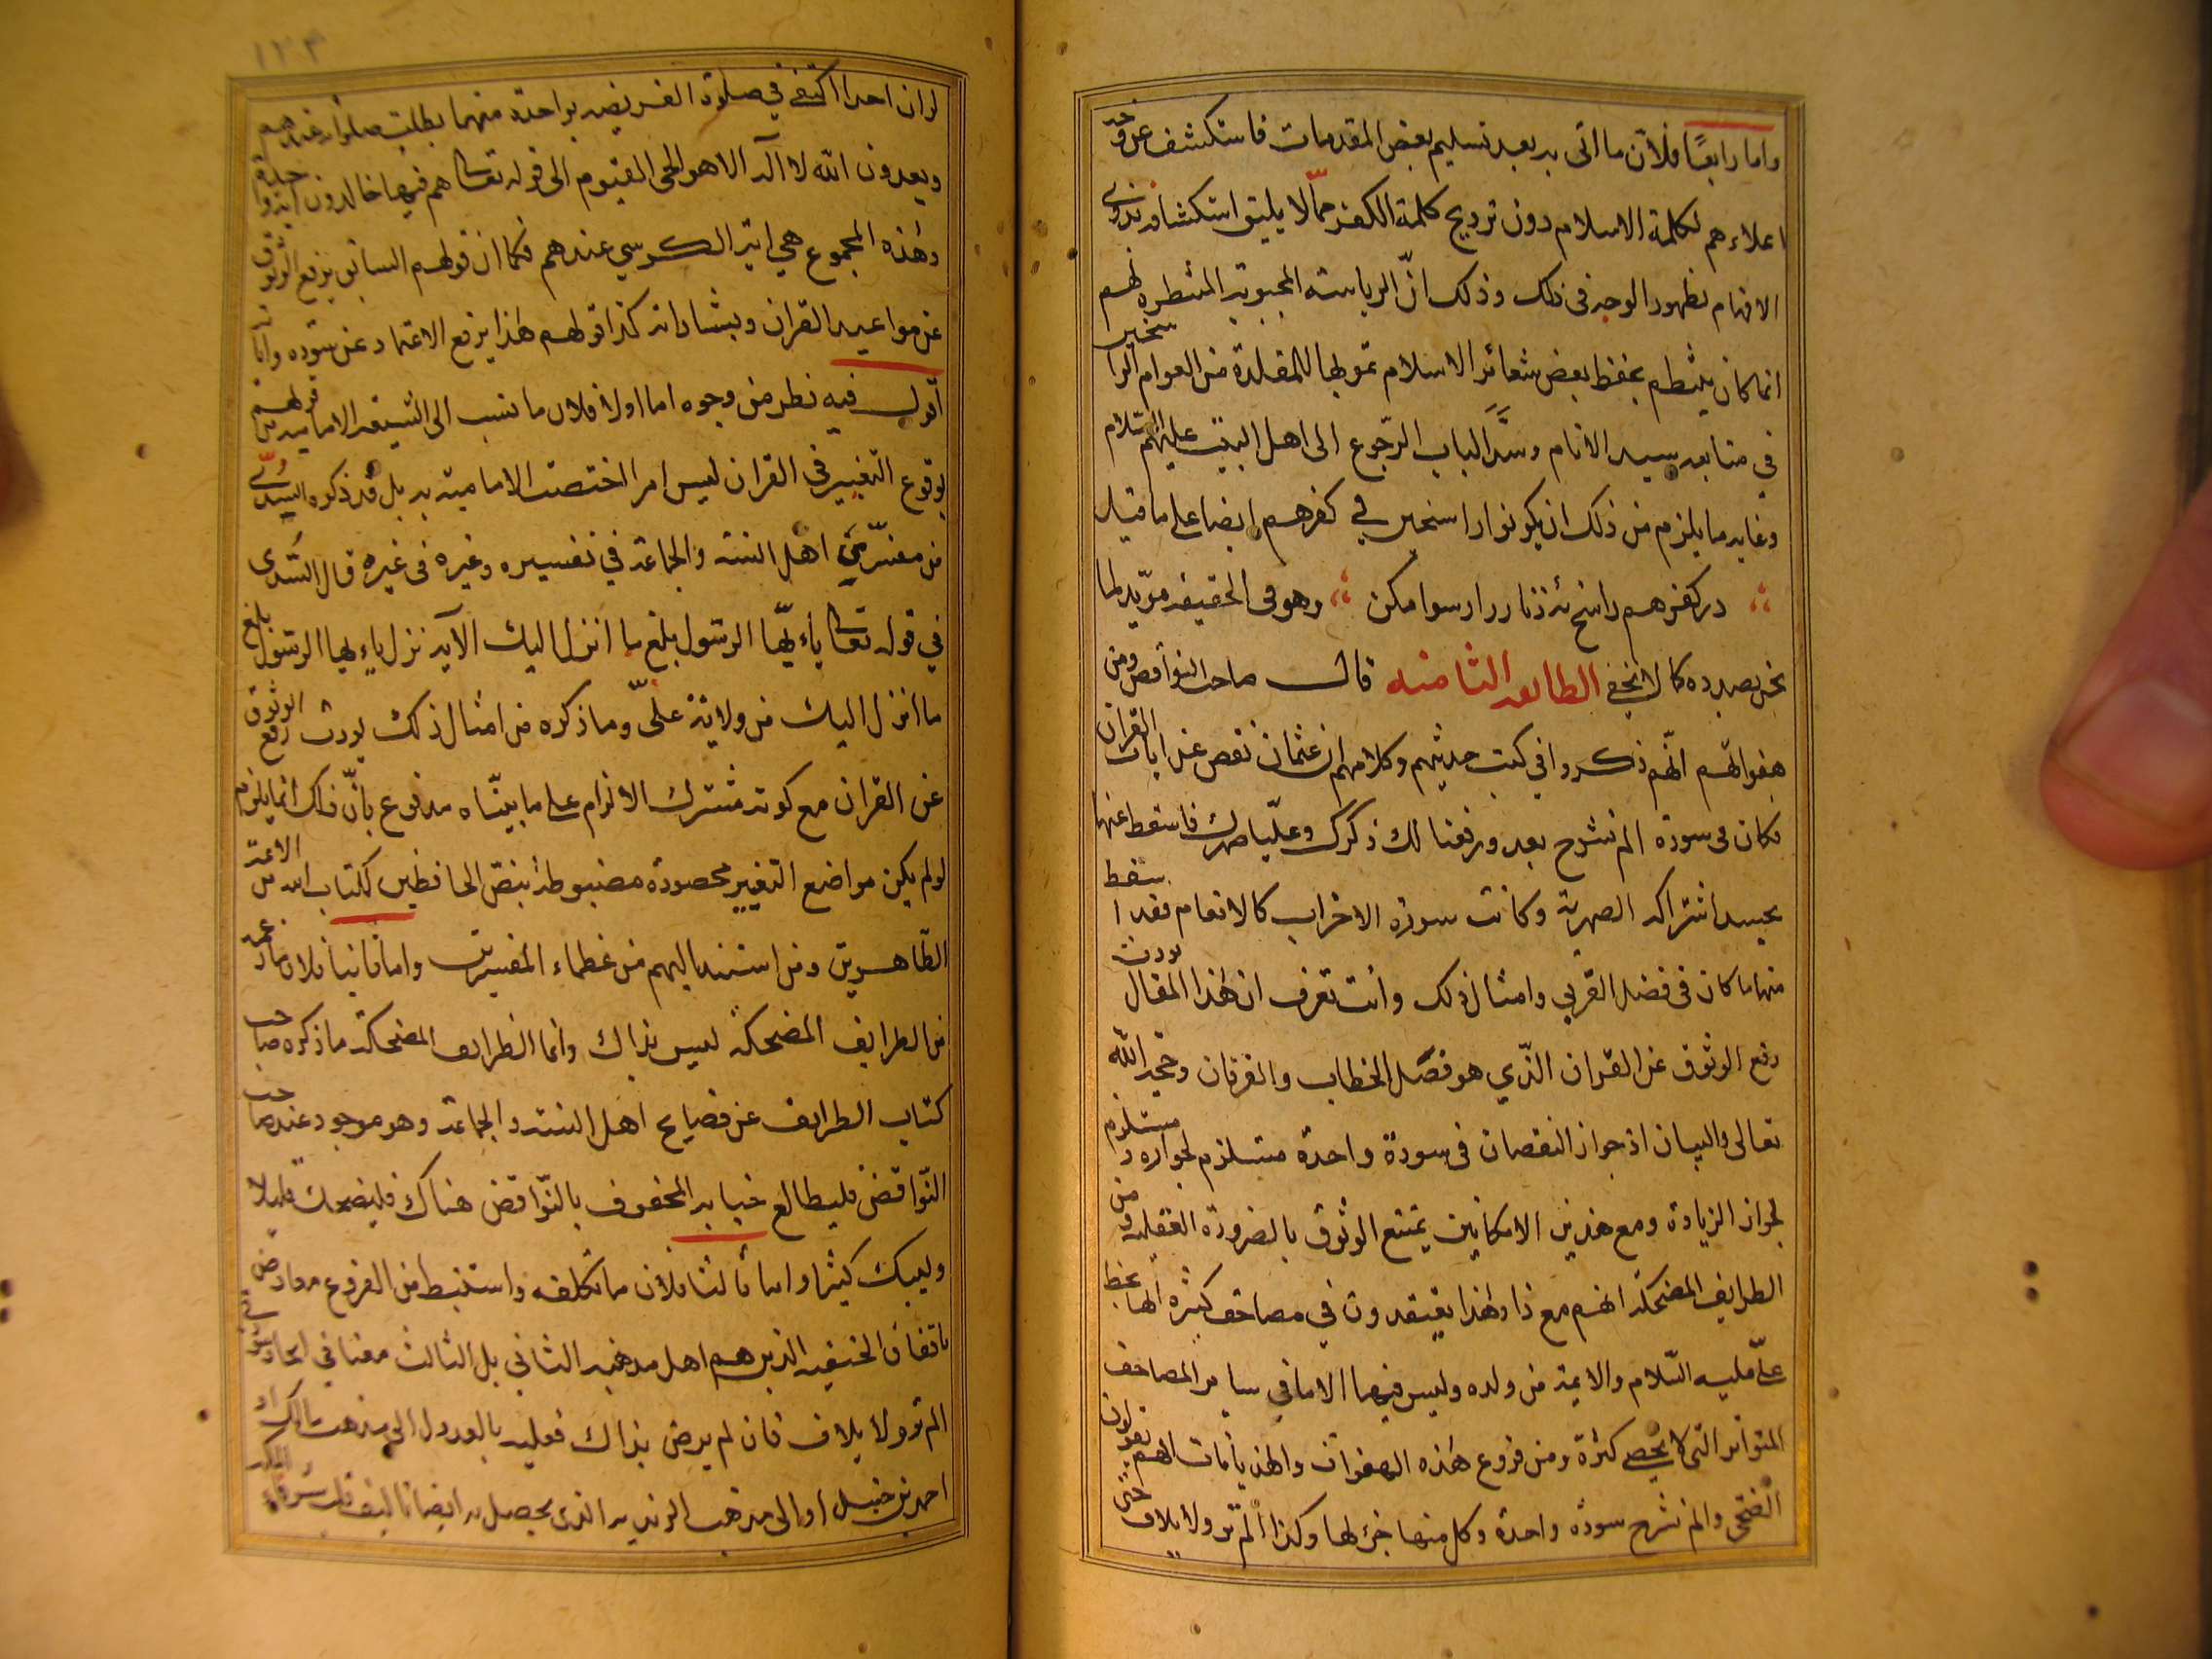 واما رابعًا فلان ما اتى به بعد تسليم بعض المقدمات فاستكشف عن وجه
اعلاءهم لكلمة الاسلام دون ترويج كلمة الكفر ممّا لا يليق استكشافه بذوى
الافهام لظهور الوجه فى ذلك وذلك انّ الرياسته المحبوبة المنتظره لهم
انما كان ينتظم بحفظ بعض شعائر الاسلام تمويها للمقلدة من العوام الراسخين
في متابعه سيد الانام وسَدّ الباب الرّجوع الى اهل البيت عليهم السّلام
وغايه ما يلزم من ذلك ان يكونوا راسخين في كفرهم ايضا على ما قيل
در كفر هم راسخ نه زنار را رسوا مكن وهو فى الحقيقه مؤيد لما
نحن بصدده كما لا يخفى الطائفه الثامنه قال صاحب النواقض ومن
هفواتهم انّهم ذكروا في كتب حديثهم وكلامهم ان عثمان نقص عن ايات القران
فكان فى سورة الم نشرح بعد ورفعنا لك ذكرك وعليّا صهرك فاسقط عنها
بحسد اشتراكه الصهرية وكانت سورة الاحزاب كالانعام فقد اسقط
منها ما كان فى فضل القربى وامثال ذلك وانت تعرف ان هذا المقال يورث
رفع الوثوق عن القران الذّي هو فصل الخطاب والفرقان وحجه الله
تعالى والبيان اذ جواز النقصان فى سورة واحدة مستلزم لجوازه ومستلزم
لجواز الزيادة ومع هذين الامكانين يمتنع الوثوق بالضرورة العقليه ومن
الطرايف المضحكة انهم مع ذا وهذا يعتقدون في مصاحف كثيره انها بخط
علىّ عليه السّلام والايمة من ولده وليس فيها الا ما في ساير المصاحف
المتواتر التى لا يحصى كثرة ومن فروع هذه الهفوات والهذيانات انهم يقولون
الضحى والم نشرح سورة واحدة وكل منها جزء لها وكذا الم تر ولايلاف حتى
١٢٣
لو ان احدا اكتفى في صلوة الفريضه بواحدة منهما بطلت صلوته عندهم
ويعدون الله لا اله الا هو الحى القيوم الى قوله تعالى هم فيها خالدون آية واحدة
وهذه المجموع هي اية الكرسي عندهم فكما ان قولهم السابق يرفع الوثوق
عن مواعيد القران وبشاراته كذا قولهم هذا يرفع الاعتماد عن سوره واياته
اقول فيه نظر من وجوه اما اولا فلان ما نسب الى الشيعه الاماميه من قولهم
بوقوع التغيير في القران ليس امرا اختصت الاماميته به بل قد ذكره السدّى
من مفسّرى اهل السنته والجماعة في تفسيره وغيره فى غيره قال السّدى
في قوله تعالى ياءيّها الرسول بلغ ما انزل اليك الآيه نزل ياءيها الرسول بلغ
ما انزل اليك من ولاية علىّ وما ذكره من امثال ذلك يورث رفع الوثوق
عن القران مع كونه مشترك الالزام على ما بينّاه مدفوع بانّ ذلك انما يلزم
لو لم يكن مواضع التغيير محصورة مضبوطة بنصّ الحافظين لكتاب الله من الائمة
الطّاهرين ومن استند اليهم من عظماء المفسرين واما ثانيا فلان ما زعمه
من الطرايف المضحكة ليس بذاك وانما الطرايف المضحكه ما ذكره صاحب
كتاب الطرايف عن فضايح اهل السنته والجماعة وهو موجود عند صاحب
النّواقض فليطالع خبايه المحفوف بالنّواقض هناك فليضحك قليلا
وليبك كثيرا واما ثالثا فلان ما تكلفه واستنبط من الفروع معارض
باتفاق الحنفيه الذين هم اهل مذهبه الثاني بل الثالث معنا في اتحاد سورتي
الم تر ولايلاف فان لم يرض بذاك فعليه بالعدول الى مذهب مالك او
احمد بن حنبل او الى مذهب الزيديه الذى يحصل به ايضا تاليف قلب شرفاء